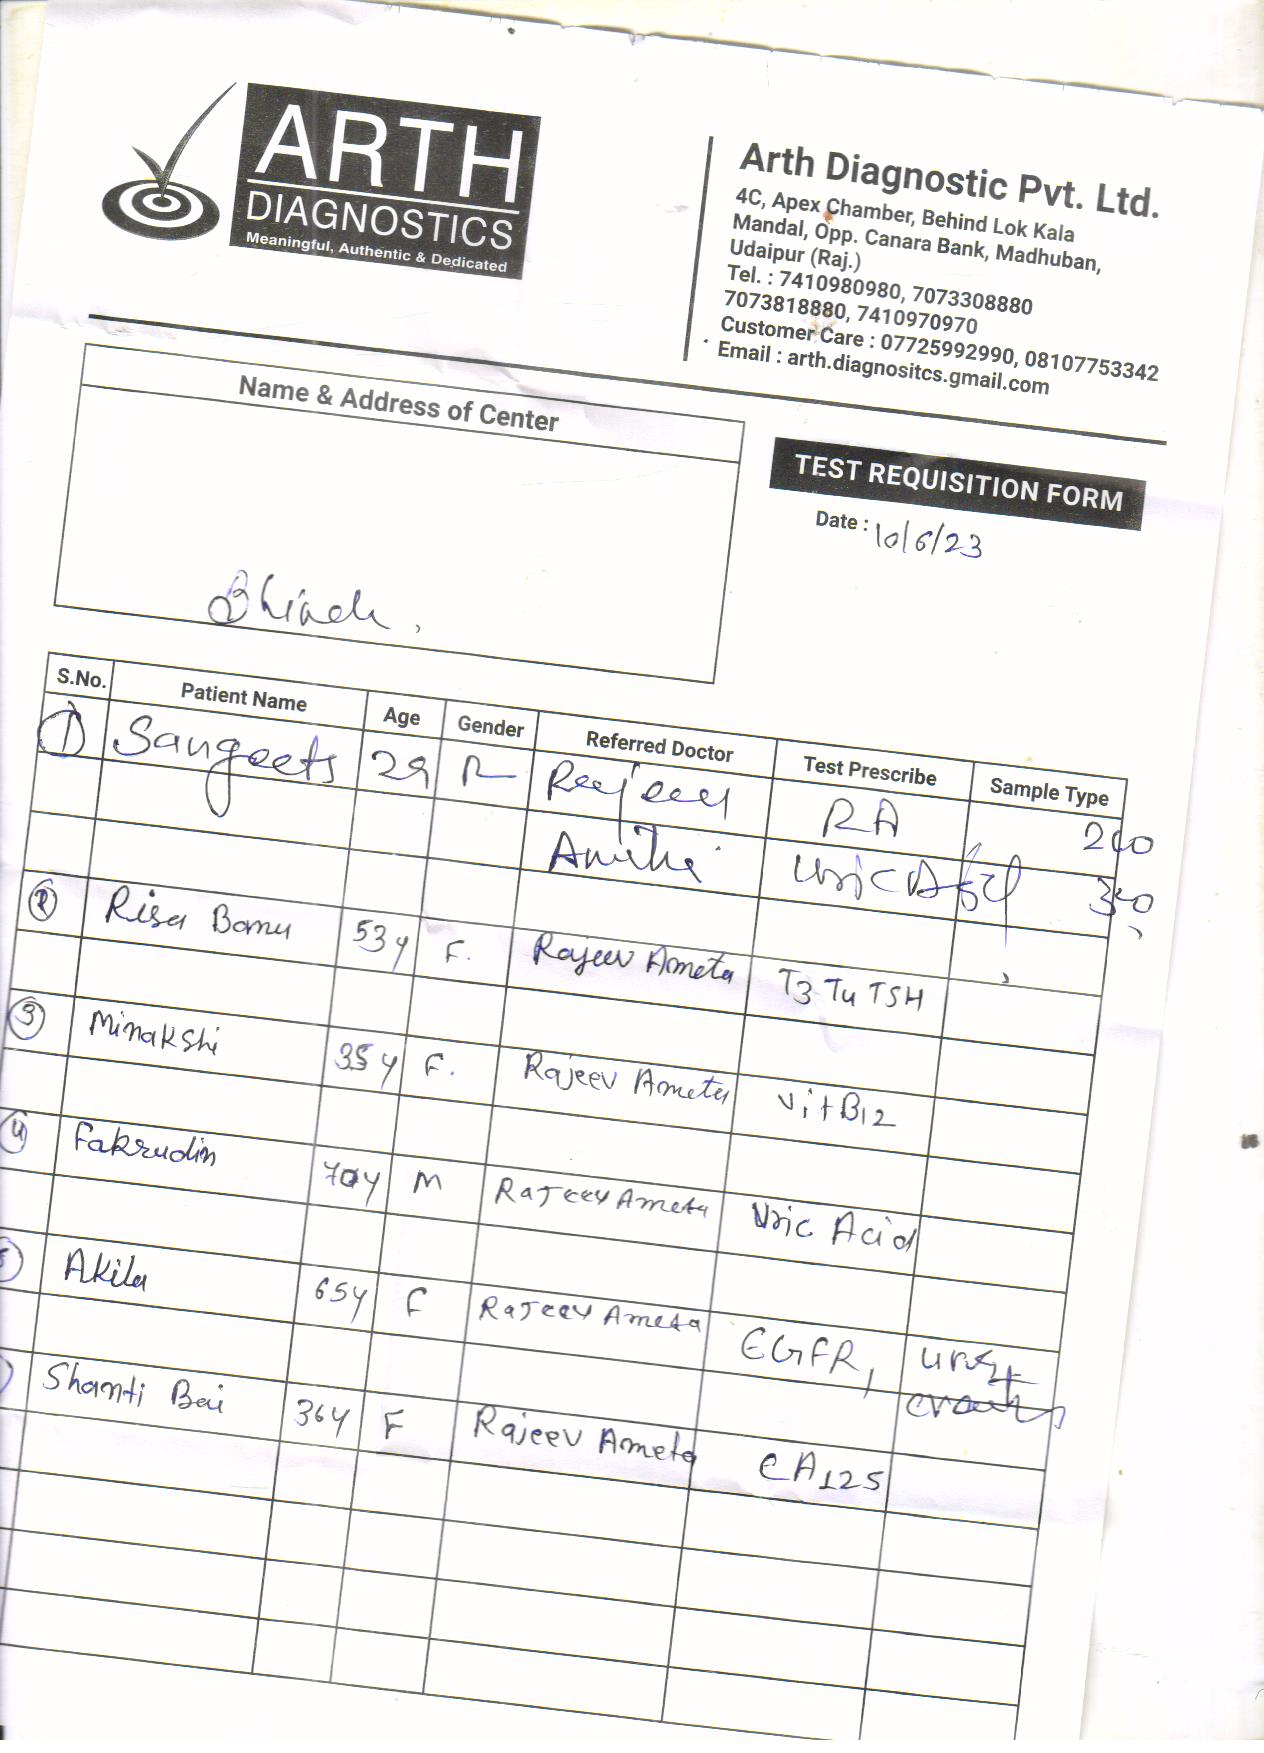 ARTH
DIAGNOSTICS
Meaningful, Authentic & Dedicated
Arth Diagnostic Pvt. Ltd.
4C, Apex Chamber, Behind Lok Kala
Mandal, Opp. Canara Bank, Madhuban,
Udaipur (Raj.)
Tel. : 7410980980, 7073308880
7073818880, 7410970970
Customer Care : 07725992990, 08107753342
Email : arth.diagnositcs.gmail.com
Name & Address of Center
TEST REQUISITION FORM
Date : 10/6/23
S.No. Patient Name Age Gender Referred Doctor Test Prescribe Sample Type
1 Sangeets 29 Rajeev RA 200
Uric 
2 Risa Banu 53y F. Rajeev Ameta T3 T4 TSH
3 Minakshi 35y F. Rajeev Ameta Vit B12
4 Fakrudin 70y M Rajeev Ameta Uric Acid
Akila 65y F Rajeev Ameta EGFR,
Shanti Bai 36y F Rajeev Ameta CA125